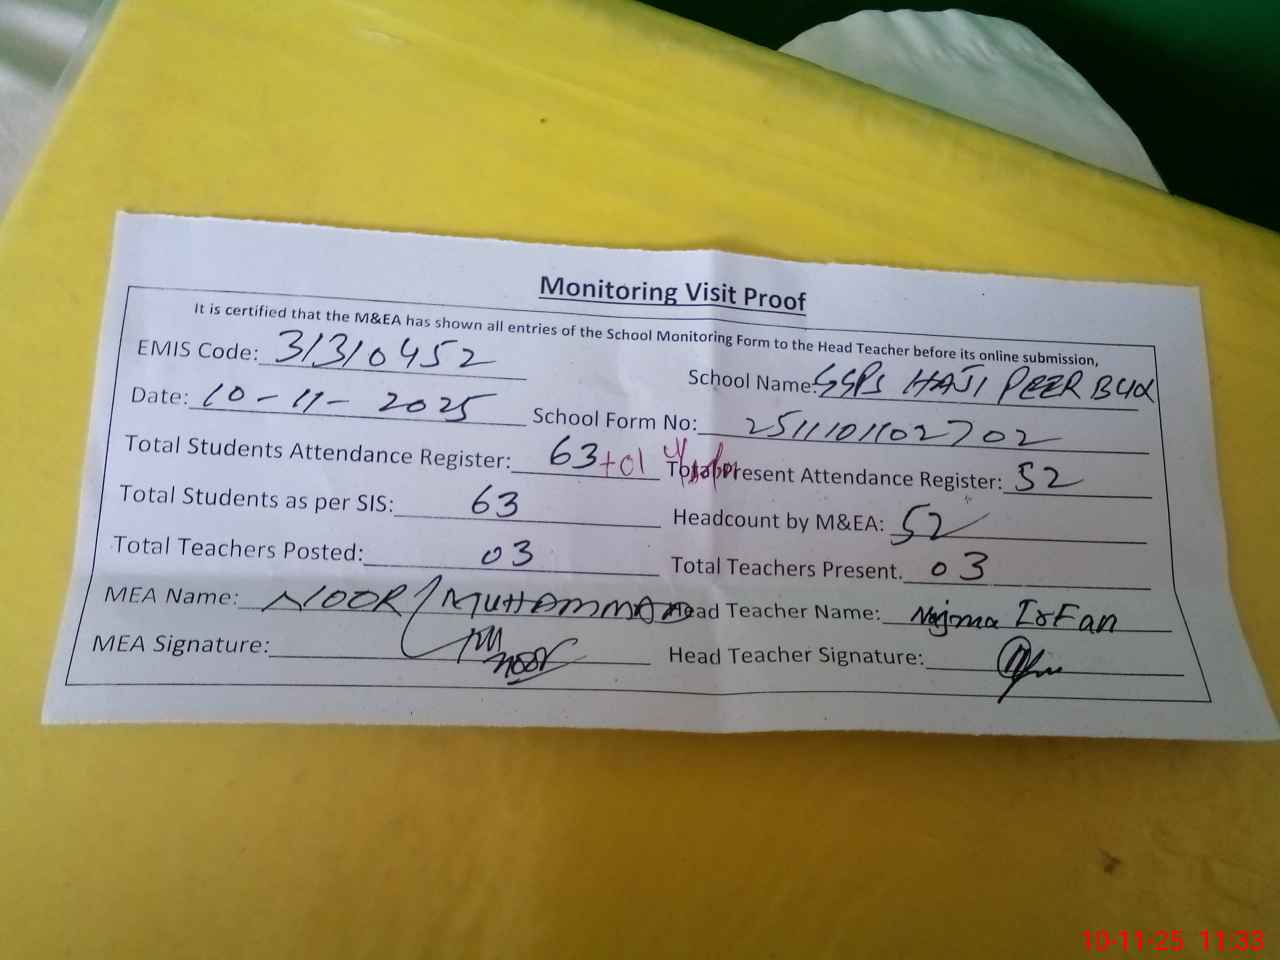 Monitoring Visit Proof
It is certified that the M&EA has shown all entries of the School Monitoring Form to the Head Teacher before its online submission,
EMIS Code: 31310452 School Name: GGPS HAJI PEER BUX
Date: 10-11-2025 School Form No: 2511101102702
Total Students Attendance Register: 63 +01 Total Present Attendance Register: 52
Total Students as per SIS: 63 Headcount by M&EA: 52
Total Teachers Posted: 03 Total Teachers Present. 03
MEA Name: NOOR MUHAMMAD Head Teacher Name: Najma IrFan
MEA Signature: Head Teacher Signature:
10-11-25 11:33